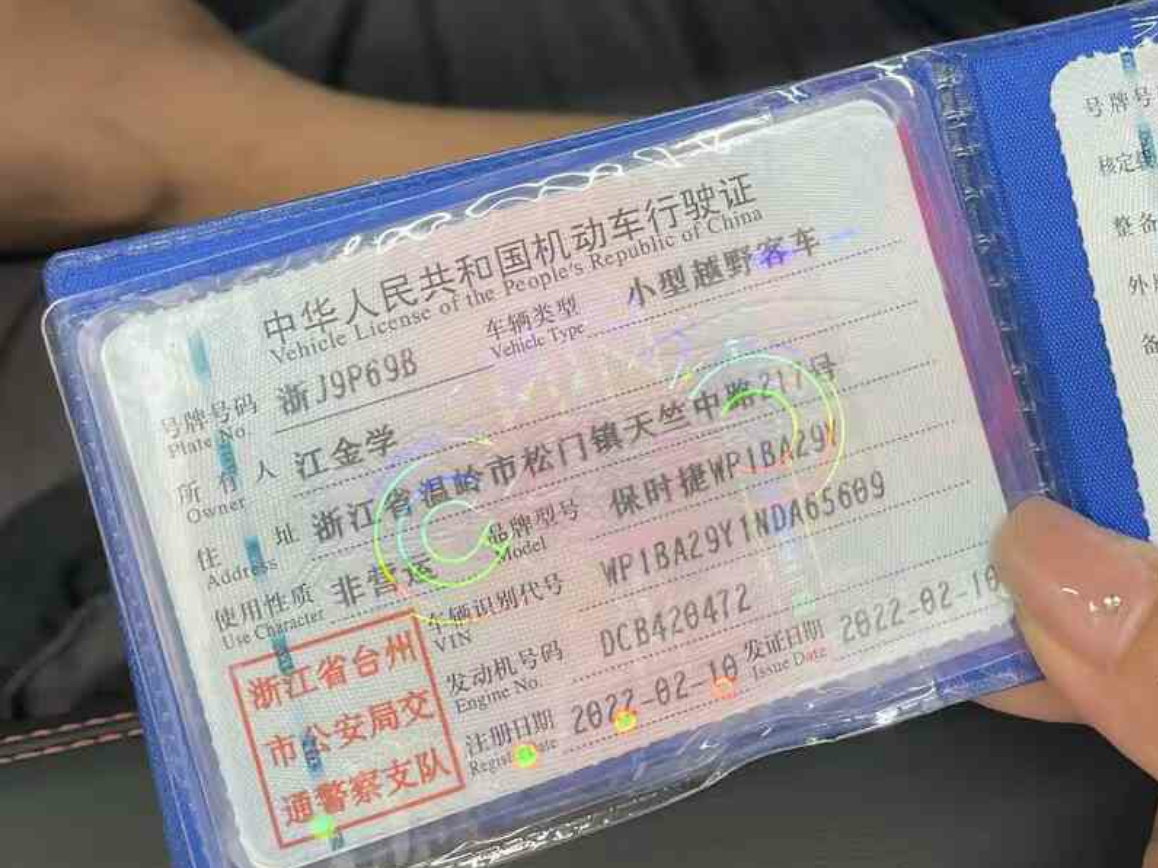 中华人民共和国机动车行驶证
Vehicle License of the People's Republic of China
号牌号码 浙J9P69B 车辆类型 小型越野客车
Plate No. Vehicle Type
所有人 江金学
Owner
住址 浙江省温岭市松门镇天竺中路211号
Address
使用性质 非营运 品牌型号 保时捷WP1BA29Y
Use Character Model
车辆识别代号 WP1BA29Y1NDA65609
VIN
发动机号码 DCB420472
Engine No.
注册日期 2022-02-10 发证日期 2022-02-10
Register Date Issue Date
浙江省台州
市公安局交
通警察支队
号牌号
核定
整备
外
备